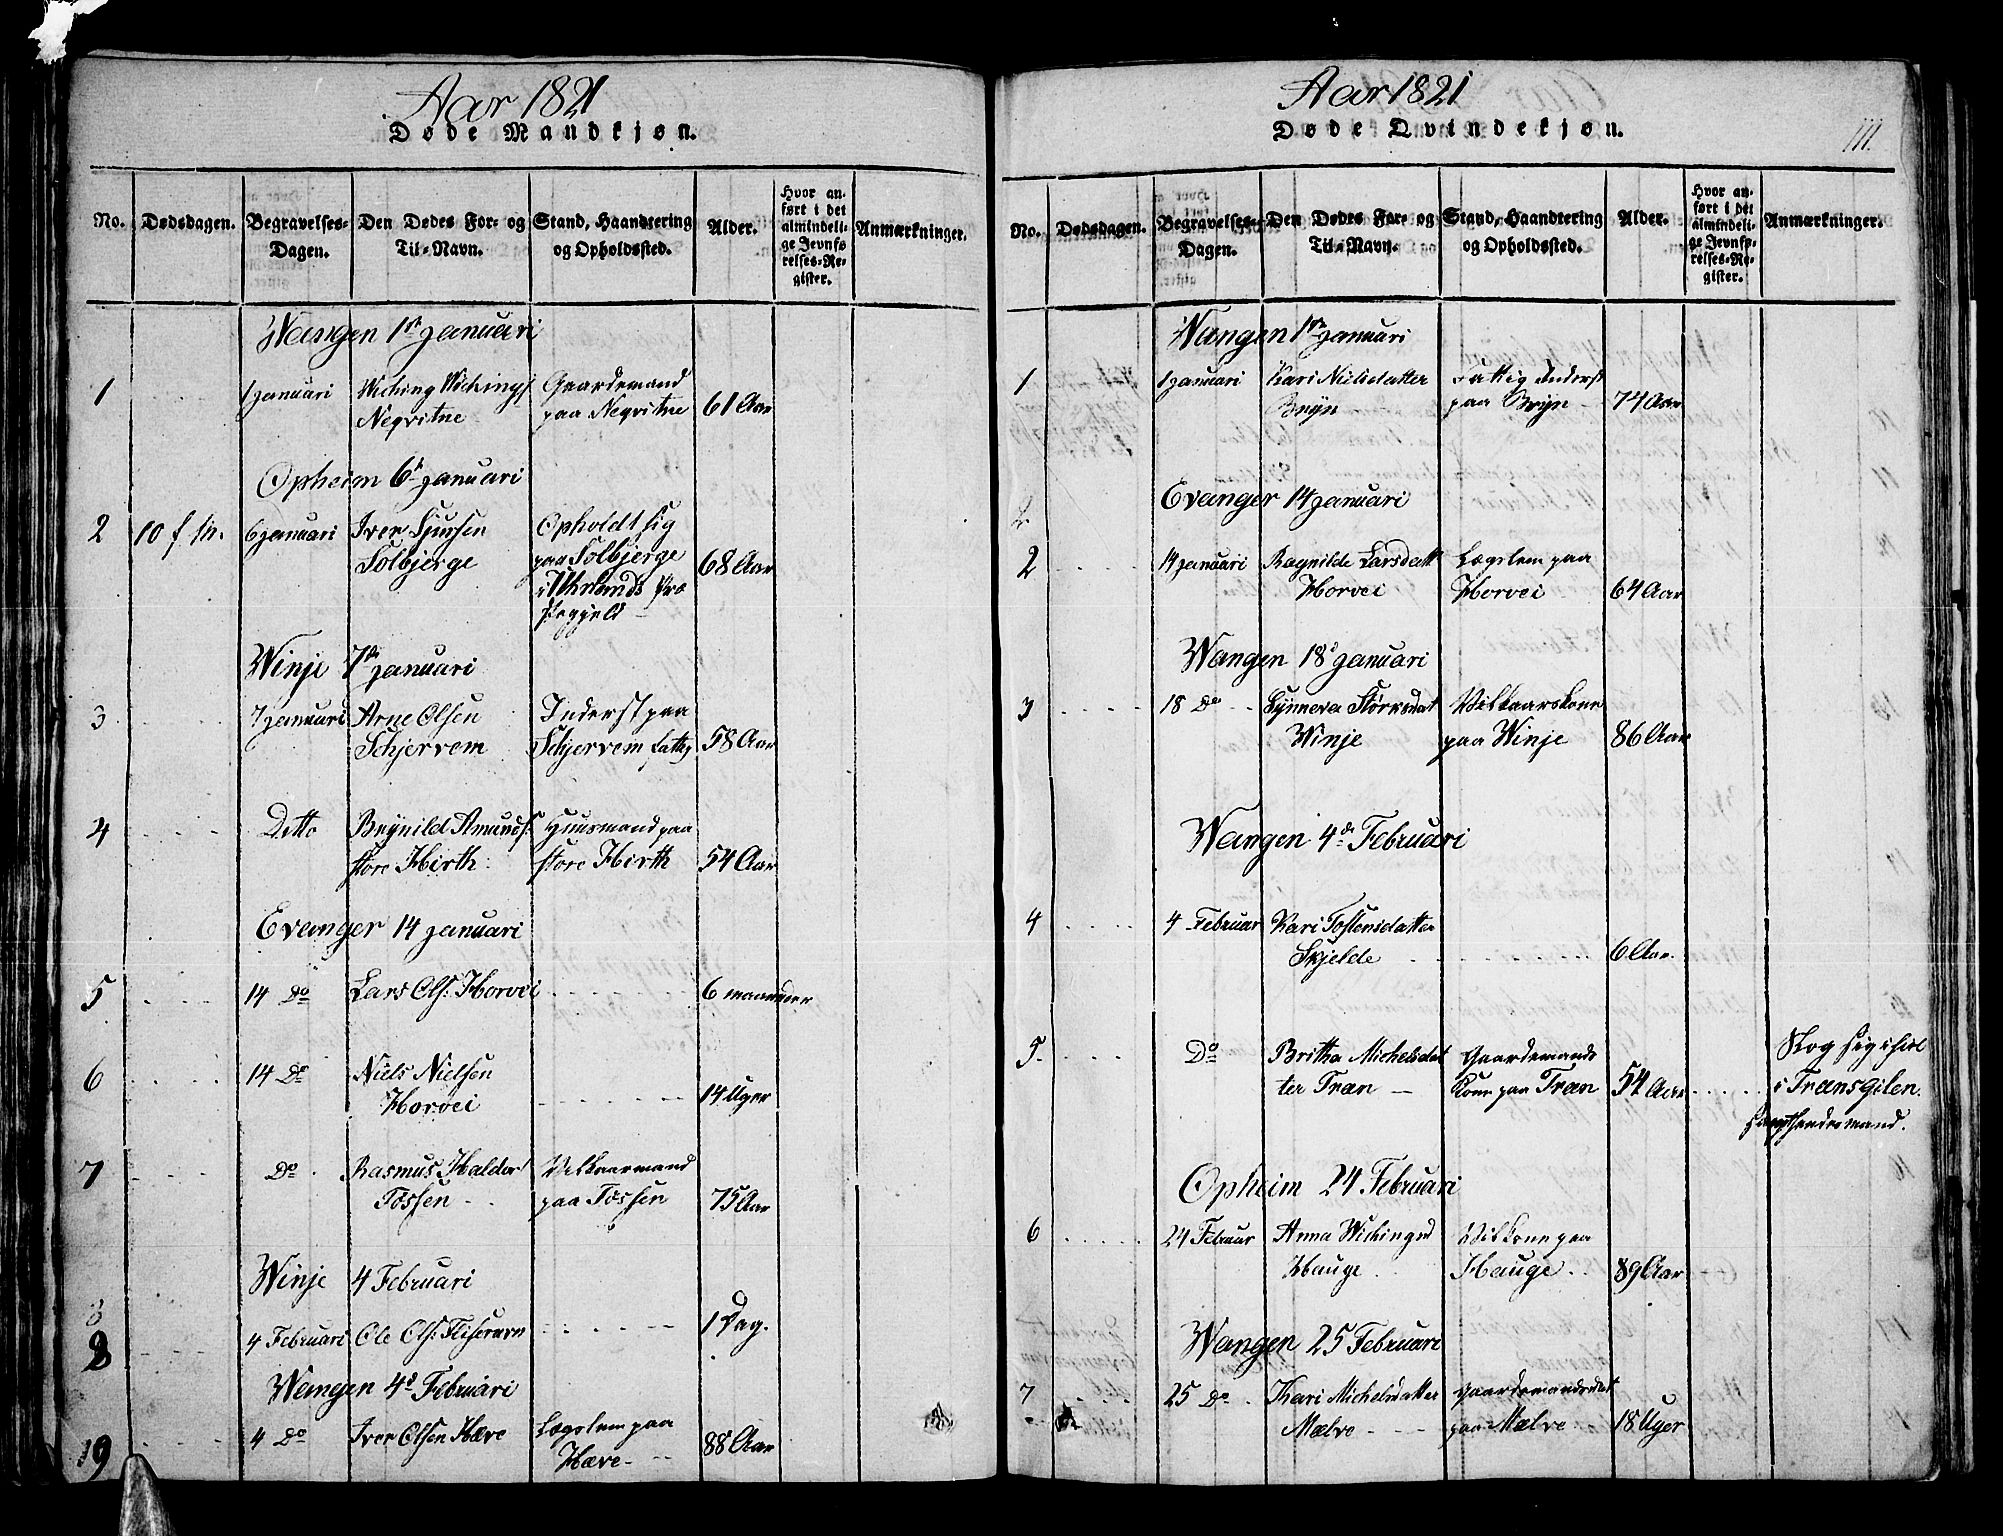 Aar 1821
Døde Mandkjøn.
No.
Dødsdagen.
Begravelses-
Dagen.
Den Dødes For- og
Til-Navn.
Stand, Haandtering
og Opholdssted.
Alder.
Hvor an-
ført i det
almindeli-
ge Jevnfø
relses-Re-
gister.
Anmærkninger.
Wangen 1 januari
1 1 januari Wiching Wichings Gaardemand
Neqvitne paa Neqvitne 61 Aar
Opheim 6 januari
2 10 6 januari Iver Sjursen Opholdt sig
Solbjerge paa Solbjerge 68 Aar
i Præ
stegjeld
Winje 7 januari
3 7 januari Arne Olsen Inderst paa
Schjervem Schjervem 58 Aar
4 Ditto Brynild Amunds. Huusmand paa
store Hirth store Hirth 54 Aar
Evanger 14 januari
5 14 Do Lars Ols: Horvei 6 maaneder
6 14 Do Niels Nielsen
Horvei 14 Uger
7 Do Rasmus Haldor Vilkaarmand
Tøssen paa Tøssen 75 Aar
Winje 4 Februari
8 4 Februari Ole Ols: 1 Dag.
Wangen 4 Februari
9 4 Do Iver Olsen Hæve Lægslem paa
Hæve 88 Aar
Aar 1821
Døde Qvindekjøn.
111.
No.
Dødsdagen.
Begravelses-
Dagen.
Den Dødes For- og
Til-Navn.
Stand, Haandtering
og Opholdssted.
Alder.
Hvor an-
ført i det
almindeli-
ge Jevnfø-
relses-Re-
gister.
Anmærkninger.
Wangen 1 januari
1 1 januari Kari Nielsdatter Fattig Inderst
Bryn paa Bryn 74 Aar
2 Evanger 14 januari
2 14 januari Ragnilde Larsdatt Lægslem paa
Horvei Horvei 64 Aar
Wangen 18 januari
3 18 Do Synneva Størksdat Vilkaarskone
Winje paa Winje 86 Aar
Wangen 4 Februari
4 4 Februar Kari Tostensdatter
Skjelde 6 Aar
5. Do Britha Michelsdat Gaardemands Slog sig ihiel
ter Træn Kone paa Træn 54 Aar i Trænsgilen.
Opheim 24 Februari
6 24 Februar Anna Wichingsd Vilkone paa
Hauge Hauge 89 Aar
Wangen 25 Februari
7 25 Do Kari Michelsdatter Gaardemandsdat
Mælve paa Mælve 18 Uger